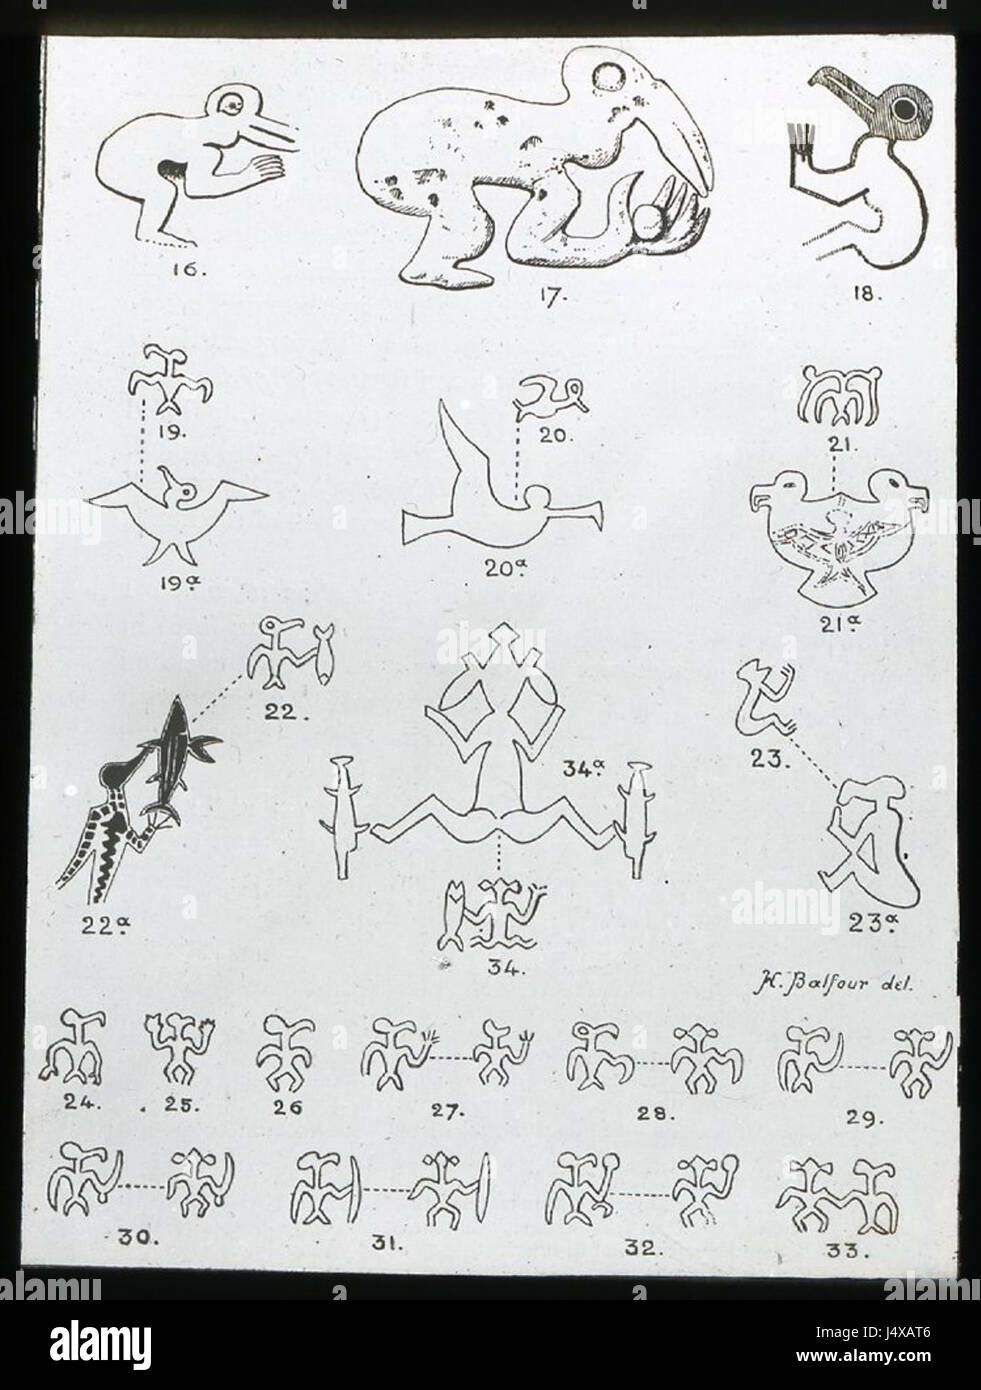 16.
17.
18.
19.
20.
21.
19ᵃ
20ᵃ
21ᵃ
22.
34ᵃ
23.
22ᵃ
23ᵃ
34.
H. Balfour del.
24.
25.
26
27.
28.
29.
30.
31.
32.
33.
alamy
alamy
Image ID: J4XAT6
www.alamy.com